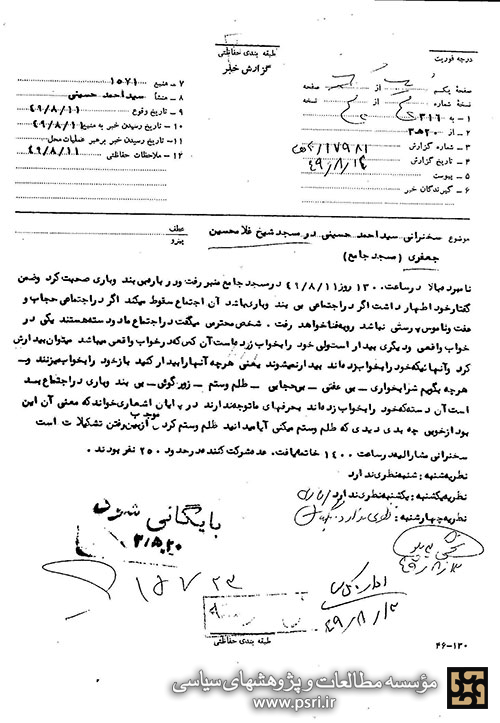 طبقه بندی حفاظتی
گزارش خبر
درجه فوریت
صفحه یکم از صفحه
نسخه شماره از نسخه
۱ - به ۳۱۶
۲ - از ۲۰ه۳
۳ - شماره گزارش ۱۷۹۸۱/۲۰ه۳
۴ - تاریخ گزارش ۴۹/۸/۱۲
۵ - پیوست
۶ - گیرندگان خبر
۷ - منبع ۱۵۷۱
۸ - منشأ سیداحمد حسینی
۹ - تاریخ وقوع ۴۹/۸/۱۱
۱۰ - تاریخ رسیدن خبر به منبع ۴۹/۸/۱۱
۱۱ - تاریخ رسیدن خبر برهبر عملیات محل
۱۲ - ملاحظات حفاظتی ۴۹/۸/۱۱
موضوع سخنرانی سیداحمد حسینی در مسجد شیخ غلامحسین
جعفری (مسجد جامع)
عطف
پیرو
نامبرده بالا در ساعت ۱۳۰۰ روز ۴۹/۸/۱۱ در مسجد جامع منبر رفت و درباره بی بند وباری صحبت کرد وضمن
گفتار خود اظهار داشت اگر در اجتماعی بی بند وباری باشد آن اجتماع سقوط میکند اگر در اجتماعی حجاب و
عفت وناموس پرستی نباشد روبفنا خواهد رفت . شخص محترمی میگفت در اجتماع ما دو دسته هستند یکی در
خواب واقعی ودیگری بیدار است ولی خود را بخواب زده است آن کس که در خواب واقعی میباشد میتوان بیدارش
کرد وآنهائیکه خود را بخواب زده اند بیدار نمیشوند یعنی هرچه آنها را بیدار کنید باز خود را بخواب میزنند و
هرچه بگویم شرابخواری - بی عفتی - بی حجابی - ظلم وستم - زورگوئی - بی بند وباری در اجتماع بد
است آن دسته که خود را بخواب زده اند بحرفهای ما توجه ندارند در پایان اشعاری خواند که معنی آن این
بود از خوبی چه بدی دیدی که ظلم وستم میکنی آیا میدانید ظلم وستم کردن موجب از بین رفتن تشکیلات است
سخنرانی مشارالیه در ساعت ۱۴۰۰ خاتمه یافت . عده شرکت کننده در حدود ۲۵۰ نفر بودند .
نظریه شنبه : شنبه نظری ندارد
نظریه یکشنبه : یکشنبه نظری ندارد
نظریه چهارشنبه : نظری ندارد
بایگانی شود
۴۹/۸/۱۳
طبقه بندی حفاظتی
۴۶-۱۳۰
مؤسسه مطالعات و پژوهشهای سیاسی
www.psri.ir